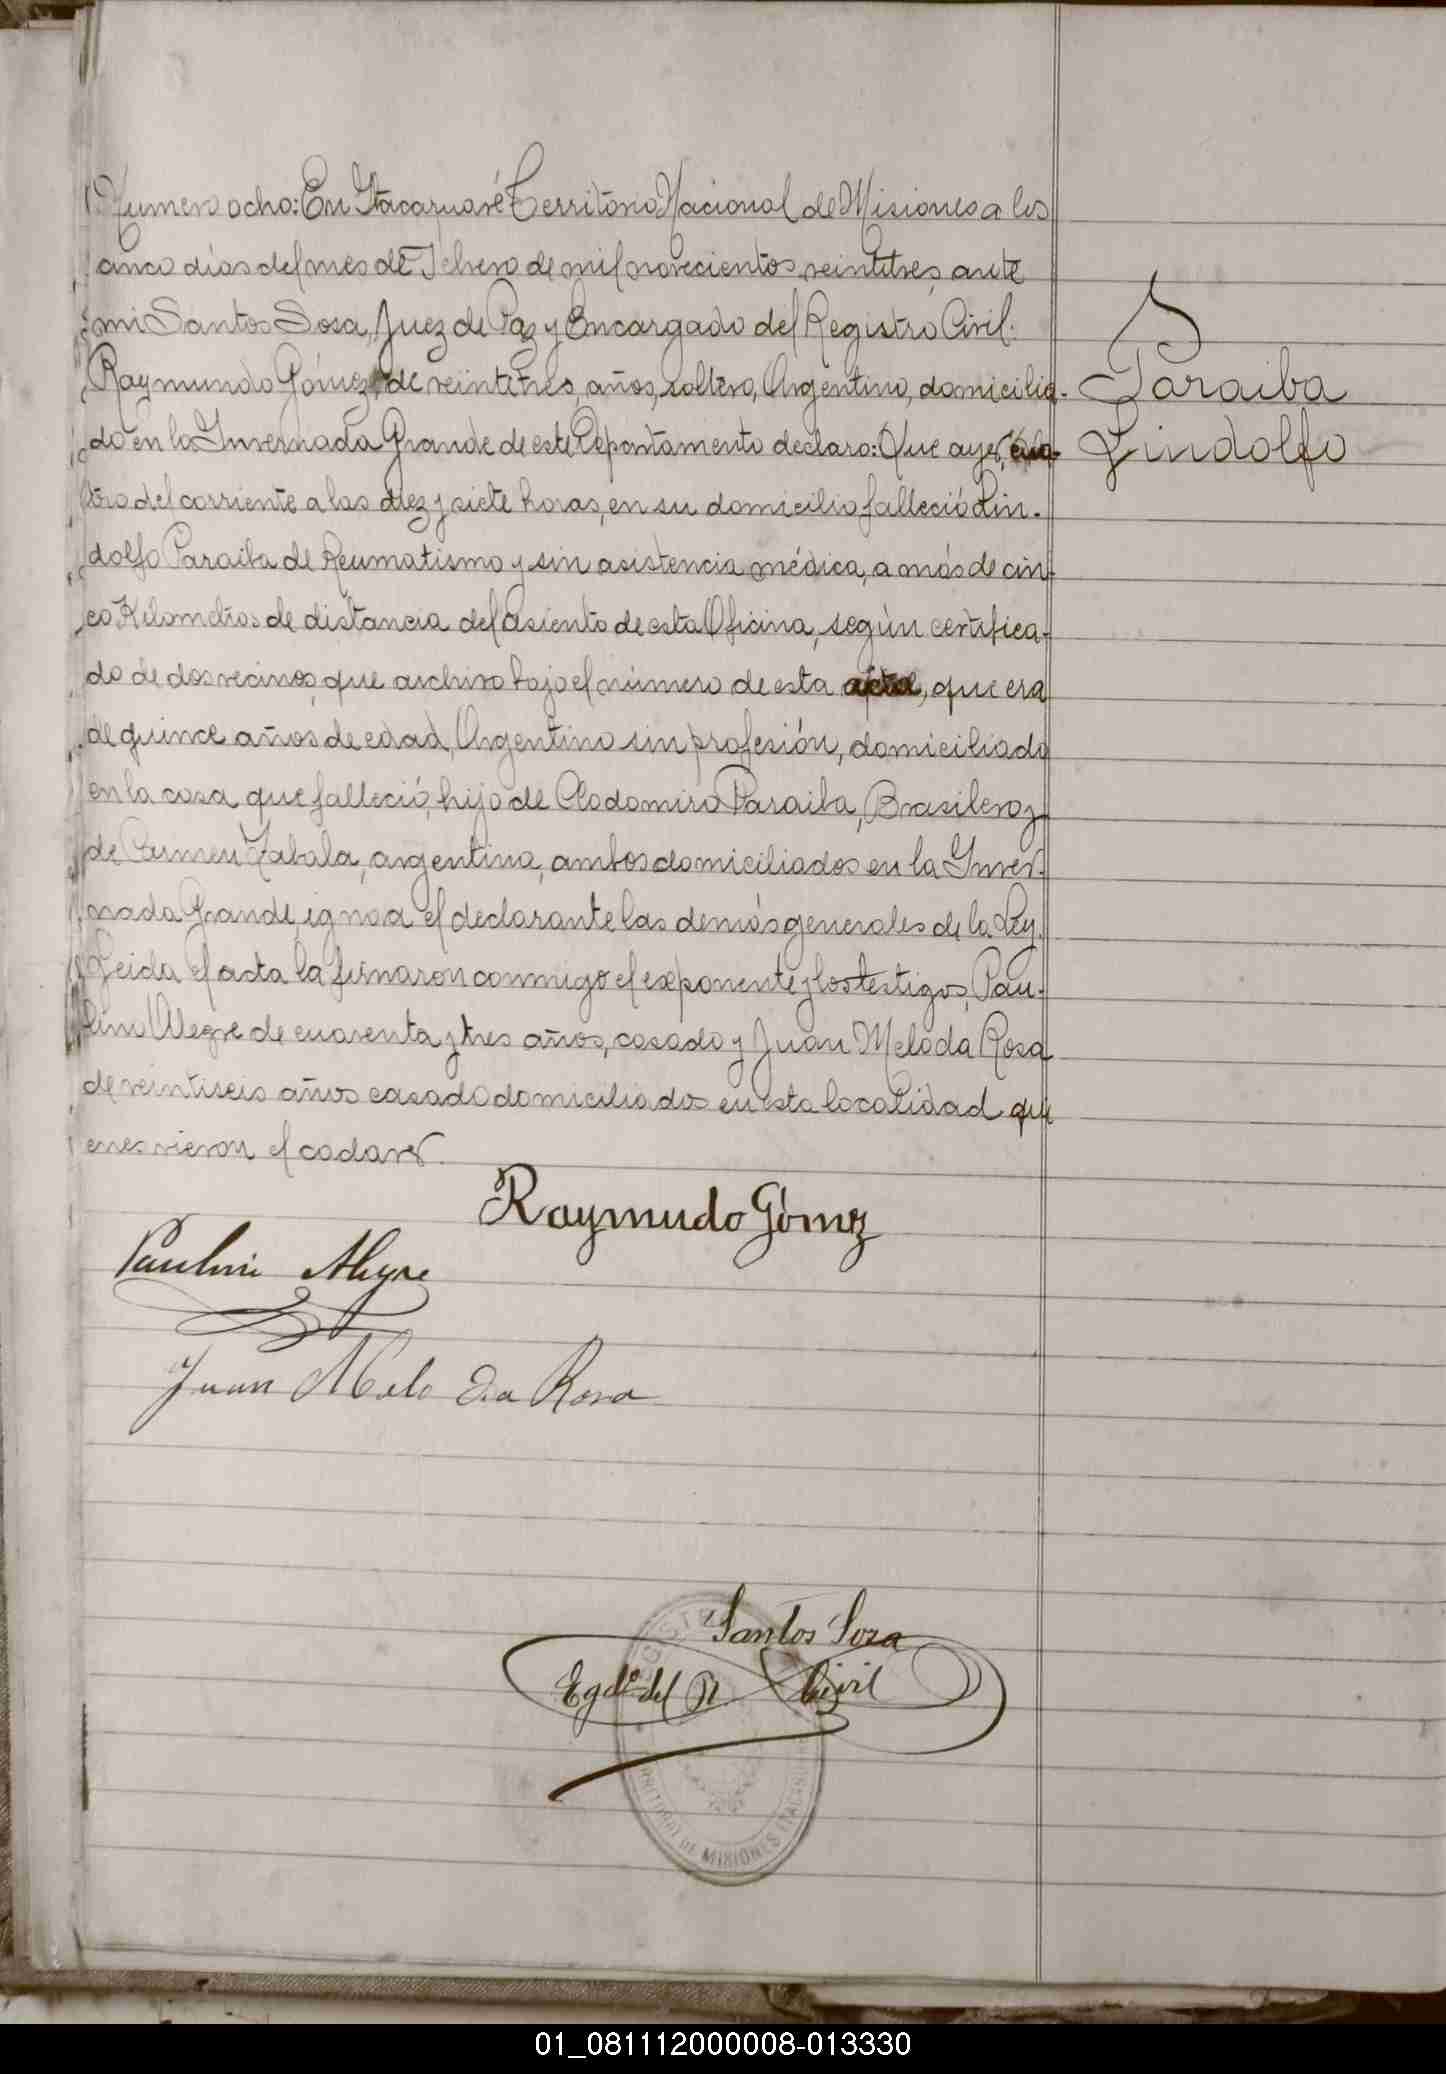 Numero ocho: En Itacaruaré Territorio Nacional de Misiones a los
cinco dias del mes de Febrero de mil novecientos veintitres, ante
mi Santos Sosa, Juez de Paz y Encargado del Registro Civil.
Raymundo Gómez, de veintetres, años, soltero, Argentino, domicilia-
do en la Invernada Grande de este Departamento declaro: Que ayer, cua-
tro del corriente a las diez y siete horas, en su domicilio falleció Lin-
dolfo Paraiba de Reumatismo y sin asistencia médica, a más de cin-
co Kilometros de distancia del Asiento de esta Oficina, según certifica-
do de dos vecinos, que archivo bajo el número de esta acta, que era
de quince años de edad, Argentino sin profesión, domiciliado
en la casa que falleció, hijo de Clodomiro Paraiba, Brasilero y
de Carmen Zabala, argentina, ambos domiciliados en la Inver-
nada Grande, ignora el declarante las demás generales de la Ley.
Leida el acta la firmaron conmigo el exponente y los testigos, Pau-
lino Alegre de cuarenta y tres años, casado y Juan Melo da Rosa
de veintiseis años casado domiciliados en esta localidad qui
enes vieron el cadaver.
Paraiba
Lindolfo
Raymudo Gómez
Paulino Alegre
Juan Melo da Rosa
Santos Sosa
Egdo. del R Civil
REGISTR
TERRITORIO DE MISIONES ITACARUARE
01_081112000008-013330